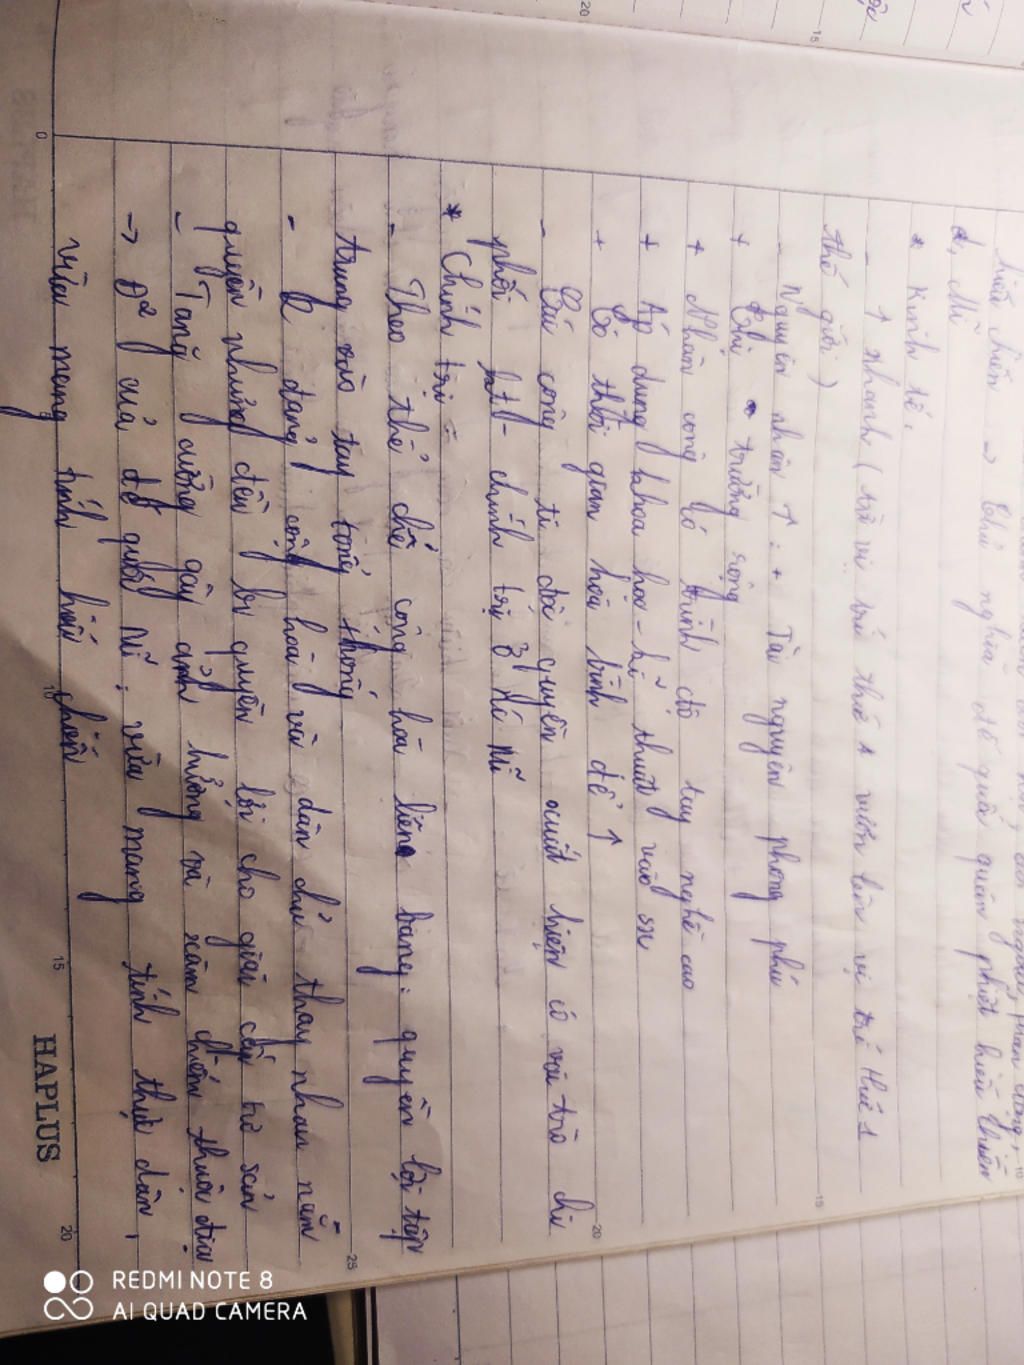 hiếu chiến → Chủ nghĩa đế quốc quân phiệt hiếu chiến
d, Mĩ
* Kinh tế,
- ↑ nhanh ( từ vị trí thứ 4 vươn lên vị trí thứ 1
thế giới )
- Nguyên nhân ↑ : + Tài nguyên phong phú
+ Thị trường rộng
+ Nhân công có trình độ tay nghề cao
+ Áp dụng khoa học - kĩ thuật vào sx
+ Có thời gian hòa bình để ↑
- Các công ti độc quyền xuất hiện có vai trò chi
phối kt - chính trị ở nc Mĩ
* Chính trị :
- Theo thể chế cộng hòa liên bang : quyền lợi tập
trung vào tay tổng thống
- 2 đảng cộng hoà và dân chủ thay nhau nắm
quyền nhưng đều bv quyền lợi cho giai cấp tư sản
- Tăng cường gây ảnh hưởng và xâm chiếm thuộc địa
→ Đ² của đế quốc Mĩ : vừa mang tính thực dân ,
vừa mang tính hiếu chiến
HAPLUS
0
10
15
20
25
REDMI NOTE 8
AI QUAD CAMERA